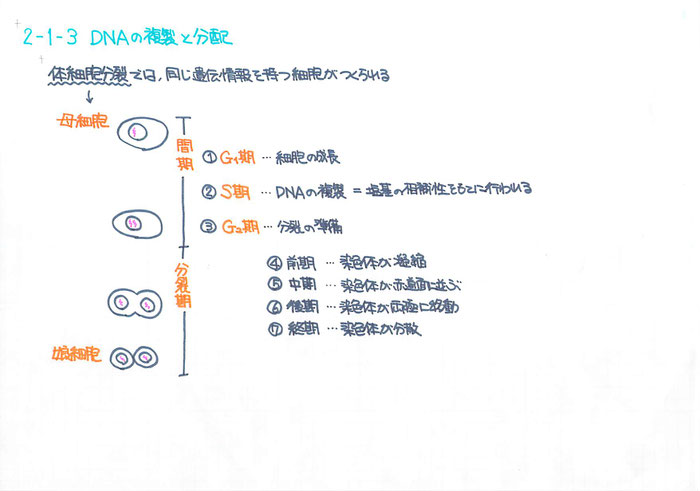 2-1-3 DNAの複製と分配
体細胞分裂では、同じ遺伝情報を持つ細胞がつくられる
母細胞
間期
① G₁期 … 細胞の成長
② S期 … DNAの複製 = 塩基の相補性をもとに行われる
③ G₂期 … 分裂の準備
分裂期
④ 前期 … 染色体が凝縮
⑤ 中期 … 染色体が赤道面に並ぶ
⑥ 後期 … 染色体が両極に移動
⑦ 終期 … 染色体が分散
娘細胞